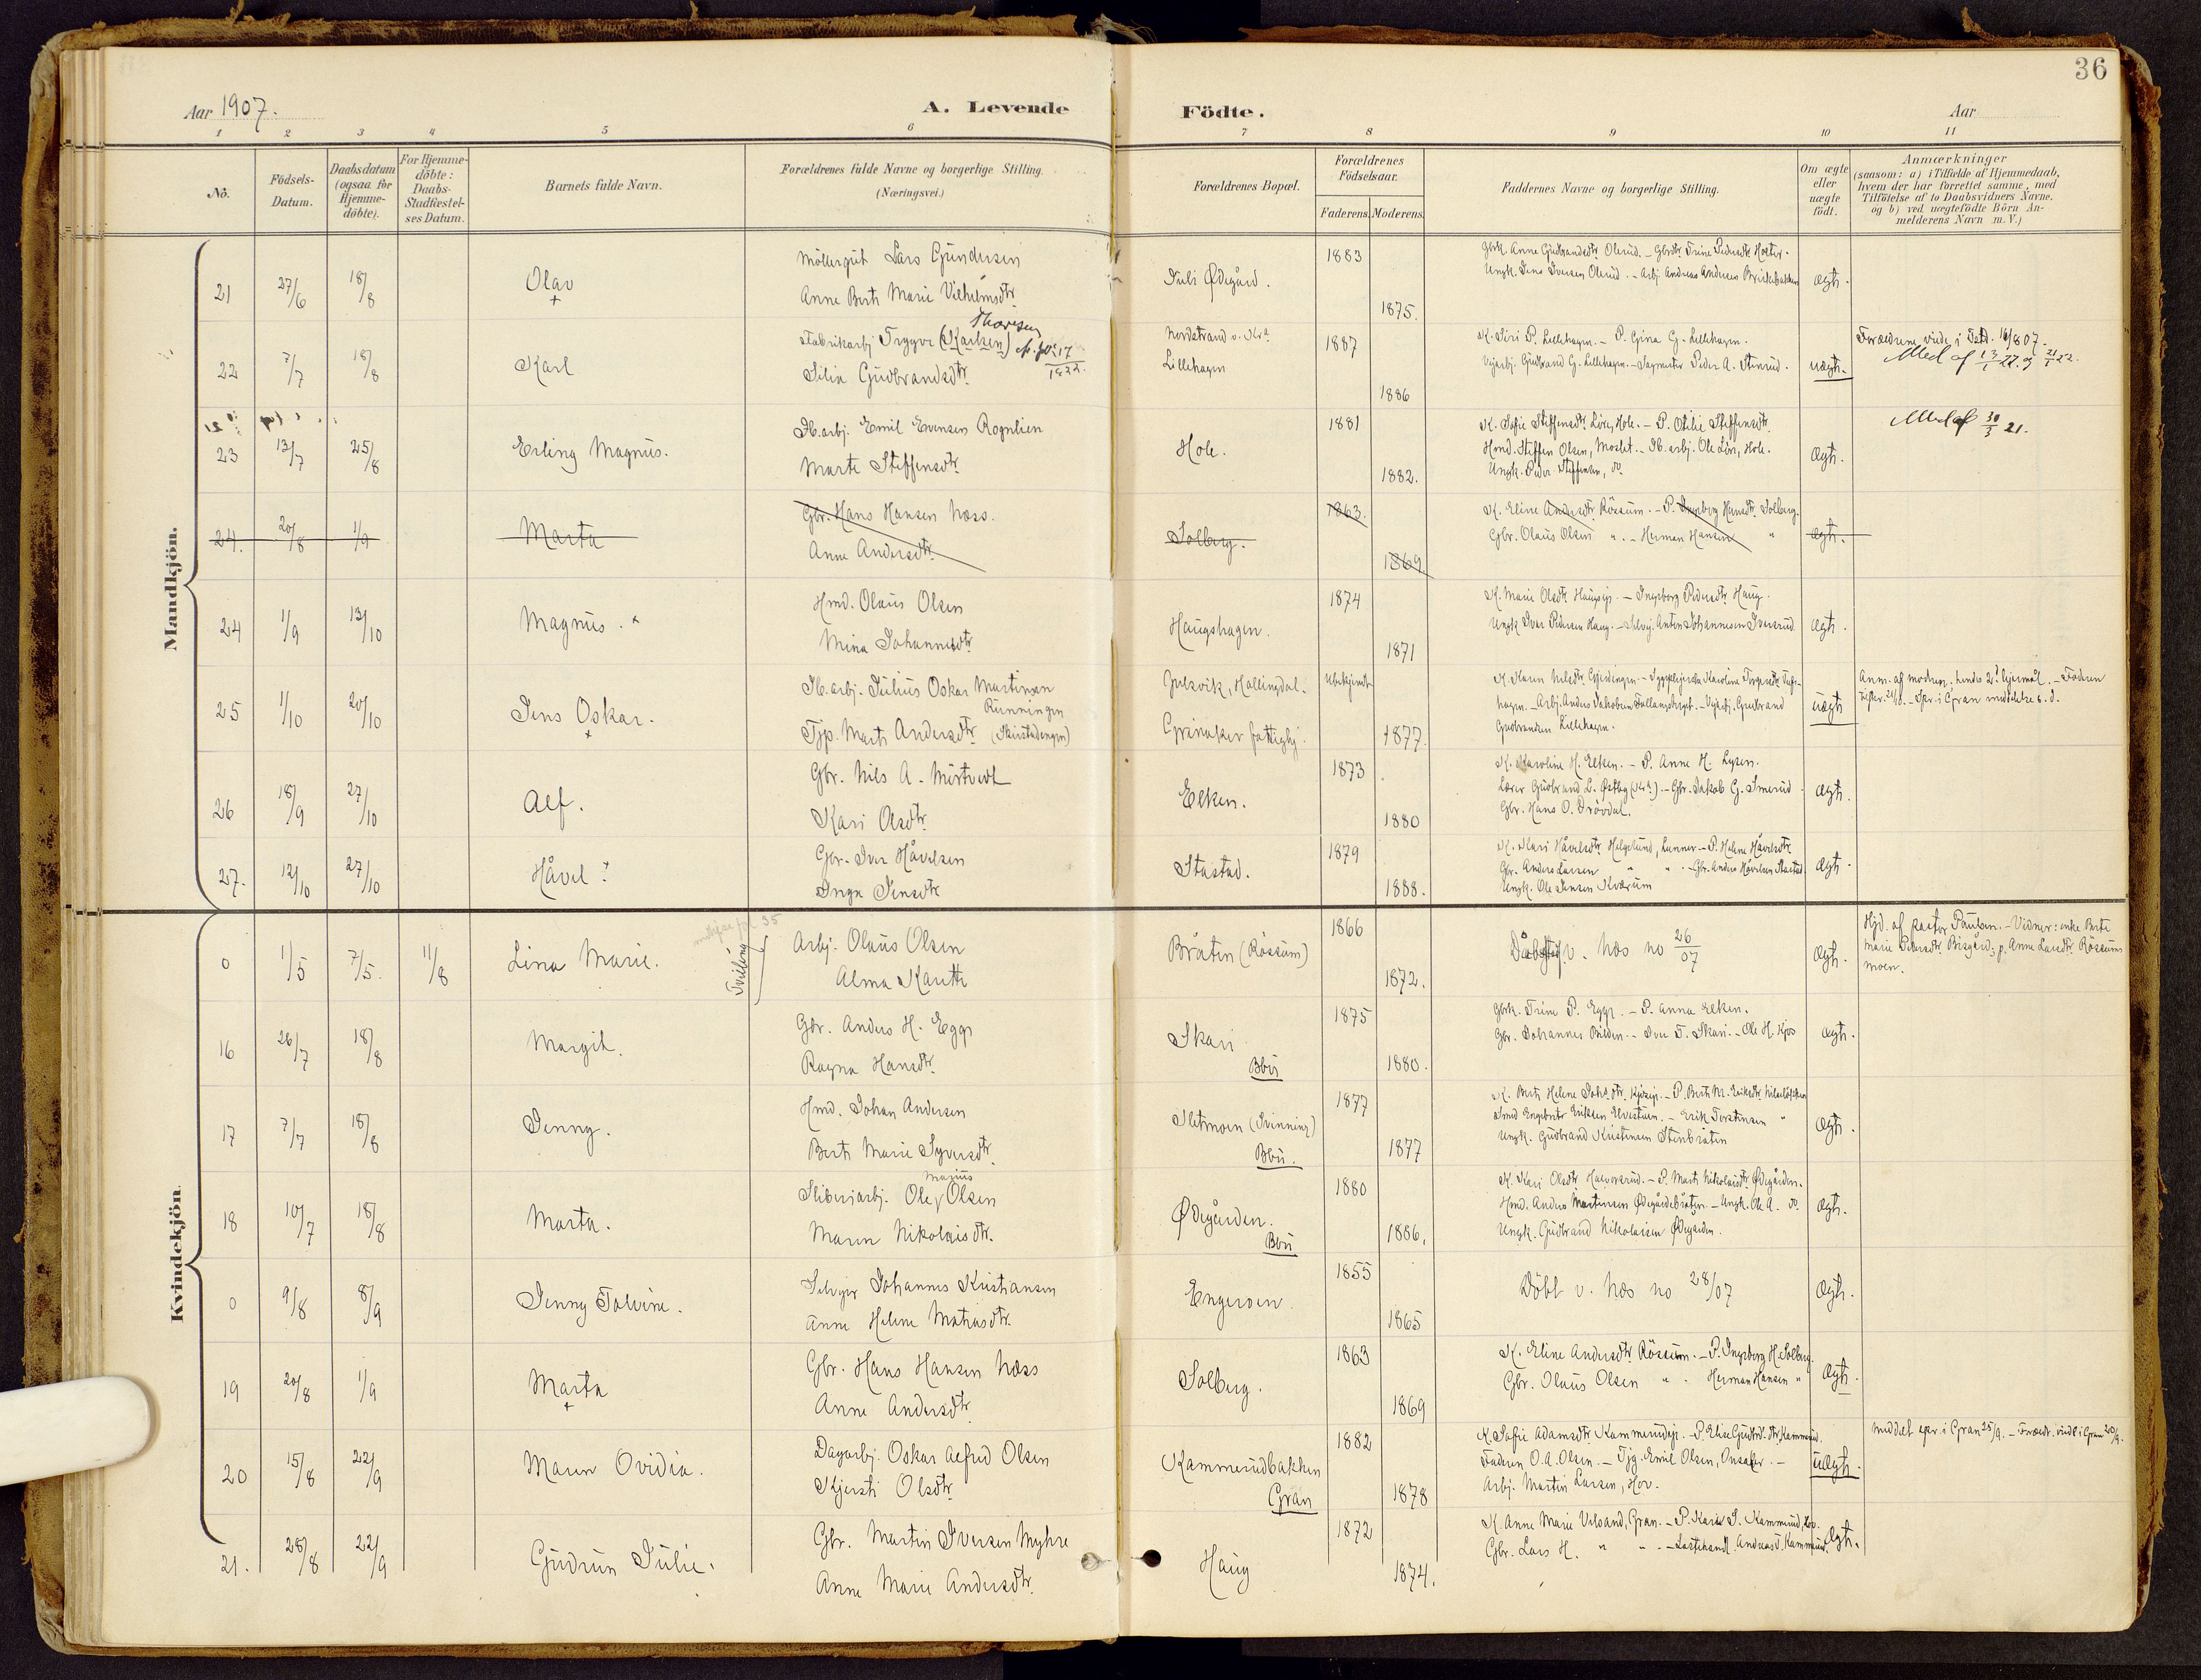 36
Aar 1907.
A. Levende Födte.
Aar
1 2 3 4 5 6 7 8 9 10 11
No.
Födsels-Datum.
Daabsdatum (ogsaa for Hjemmedöbte).
For Hjemmedöbte: Daabs-Stadfæstelses Datum.
Barnets fulde Navn.
Forældrenes fulde Navne og borgerlige Stilling. (Næringsvei.)
Forældrenes Bopæl.
Forældrenes Födselsaar.
Faderens. Moderens.
Faddernes Navne og borgerlige Stilling.
Om ægte eller uægte födt.
Anmærkninger
(saasom: a) i Tilfælde af Hjemmedaab,
hvem der har forrettet samme, med
Tilföielse af to Daabsvidners Navne.
og b) ved uægtefödte Börn An-
melderens Navn m.V.)
Mandkjön.
21 27/6 18/8 Olav +
Möllergut Lars Gundersen
Anne Berte Marie Vilhelmsdtr.
Juli Ødegård. 1883 1875.
Gbrk. Anne Gudbrandsdtr Olerud. - Gbrdtr Trine Pedersdtr Holter.
Ungk. Jens Iversen Olerud. - Arb. Andreas Andersen
ægte.
22 7/7 18/8 Karl
Thoresen
Fabrikarbj Trygve (Karlsen)
Silia Gudbrandsdtr.
Nordstrand v. Kra
Lillehagen 1887 1886
K. Siri P. Lillehagen. - P. Gina G. Lillehagen.
Vejarbj. Gudbrand G. Lillehagen. - Sagmester Peder A. Stenrud.
uægte.
Med af 13/1 22. og 21/1 22.
23 13/7 25/8 Erling Magnus.
Jb.arbj. Emil Evensen Rognlien
Marte Steffensdtr.
Hole. 1881 1882.
K. Sofie Steffensdtr. Lien, Hole. - P. Otilie Steffensdtr.
Hmd. Steffen Olsen, Moslet. - Jb.arbj. Ole Lien, Hole.
Ungk. Peder Steffensen, do
ægte.
Med af 30/3 21.
24. 20/8 1/9 Marta
Gbr. Hans Hansen Næss.
Anne Andersdtr.
Solberg. 1863. 1869.
K. Eline Andersdtr. Rössum. - P. Ingeborg Hansdtr. Solberg.
Gbr. Olaus Olsen " - Herman Hansen "
ægte.
24 1/9 13/10 Magnus. +
Hmd. Olaus Olsen
Mina Johannesdtr.
Haugshagen. 1874 1871
K. Marie Olsdtr. Haugseje. - Ingeborg Pedersdtr. Haug.
Ungk. Ivar Pedersen Haug. - Selvej. Anton Johannesen Iversrud.
ægte.
25 1/10 20/10 Jens Oskar. +
Jb.arbj. Julius Oskar Martinsen
Runningen
Tjp. Marte Andersdtr. (Skirstadengen)
Hallingdal.
Grinaker fattighj. Ubekjendt 1877.
hagen. - Arbj. Anders Jakobsen - Vejarbj. Gudbrand
Gudbrandsen Lillehagen.
uægte
Anm. af modren, hendes 2d lejermål. - Fadren
26 18/9 27/10 Alf.
Gbr. Nils A. Mörtvedt
Kari Olsdtr.
Elken. 1873 1880
K. Karoline H. Elken. - P. Anne H. Lysen.
Lærer Gudbrand L. Østby (Kra.) - Gbr. Jakob G. Smerud.
Gbr. Hans O. Drövdal.
ægte.
27. 12/10 27/10 Håvel +
Gbr. Iver Håvelsen
Inga Jensdtr
Stastad. 1879 1888.
K. Kari Håvelsdtr. Helgelund, Lunner - P. Helene Håvelsdtr.
Gbr. Anders Larsen " " - Gbr. Anders Håvelsen Stastad
Ungk. Ole Jensen Kværum
ægte.
Kvindekjön.
0 1/5 7/5. 11/8 Lina Marie.
Tvilling
Arbj. Olaus Olsen
Alma Karette
Bråten (Rössum) 1866 1872.
v. Næs no 26/07
ægte.
Hjd. af pastor Paulsen. - Vidner: enke Berte
Marie Pedersdtr. Bisgård; p. Anne Larsdtr. Rössums
moen.
16 26/7 18/8 Margit.
Gbr. Anders H. Egge
Ragna Hansdtr.
Skari
Bbu 1875 1880.
Gbrk. Trine P. Egge. - P. Anna Elken.
Gbr. Johannes Bilden. - Iver T. Skari. - Ole H. Kjos
ægte.
17 7/7 18/8 Jenny.
Hmd. Johan Andersen
Berte Marie Syversdtr.
Sletmoen (Svinning)
Bbu. 1877 1877
Smed Engebret Eriksen Elvestuen. - Erik Torstensen "
Ungk. Gudbrand Kristensen Stenbråten
ægte.
18 10/7 18/8 Marta.
Marius
Sliberiarbj. Ole Olsen
Maren Nikolaisdtr.
Ødegården.
Bbu 1880 1886.
K. Kari Olsdtr Halvorsrud. - P. Marte Nikolaisdtr. Ødegården.
Hmd. Anders Martinsen Ødegårdsbråten. - Ungk. Ole A. do.
Ungk. Gudbrand Nikolaisen Ødegården.
ægte.
0 9/8 8/9 Jenny Tolvine.
Selvejer Johannes Kristiansen
Anne Helene Matiasdtr.
Engeroen. 1855 1865
Döbt v. Næs no 28/07
ægte.
19 20/8 1/9 Marta +
Gbr. Hans Hansen Næss
Anne Andersdtr.
Solberg. 1863 1869
K. Eline Andersdtr. Rössum. - P. Ingeborg H. Solberg.
Gbr. Olaus Olsen " . Herman Hansen "
ægte.
20 15/8 22/9 Maren Ovidia.
Dagarbj. Oskar Alfred Olsen
Kjersti Olsdtr.
Kammerudbakken
Gran 1882 1878
K. Sofie Adamsdtr. Kammerudeje. - P. Elise Gudbr.dtr. Kammerud.
Faderen O.A. Olsen. - Tjg. Emil Olsen, Onsaker. -
Arbj. Martin Larsen, Hov.
uægte.
meddelt spr. i Gran 25/9.
21. 28/8 22/9 Gudrun Julie.
Gbr. Martin Iversen Myhre
Anne Marie Andersdtr.
Haug 1872 1874.
K. Anne Marie Velsand, Gran. - P. Karie S. Kammerud,
Gbr. Lars H. " " - Andreas Kammerud.
ægte.